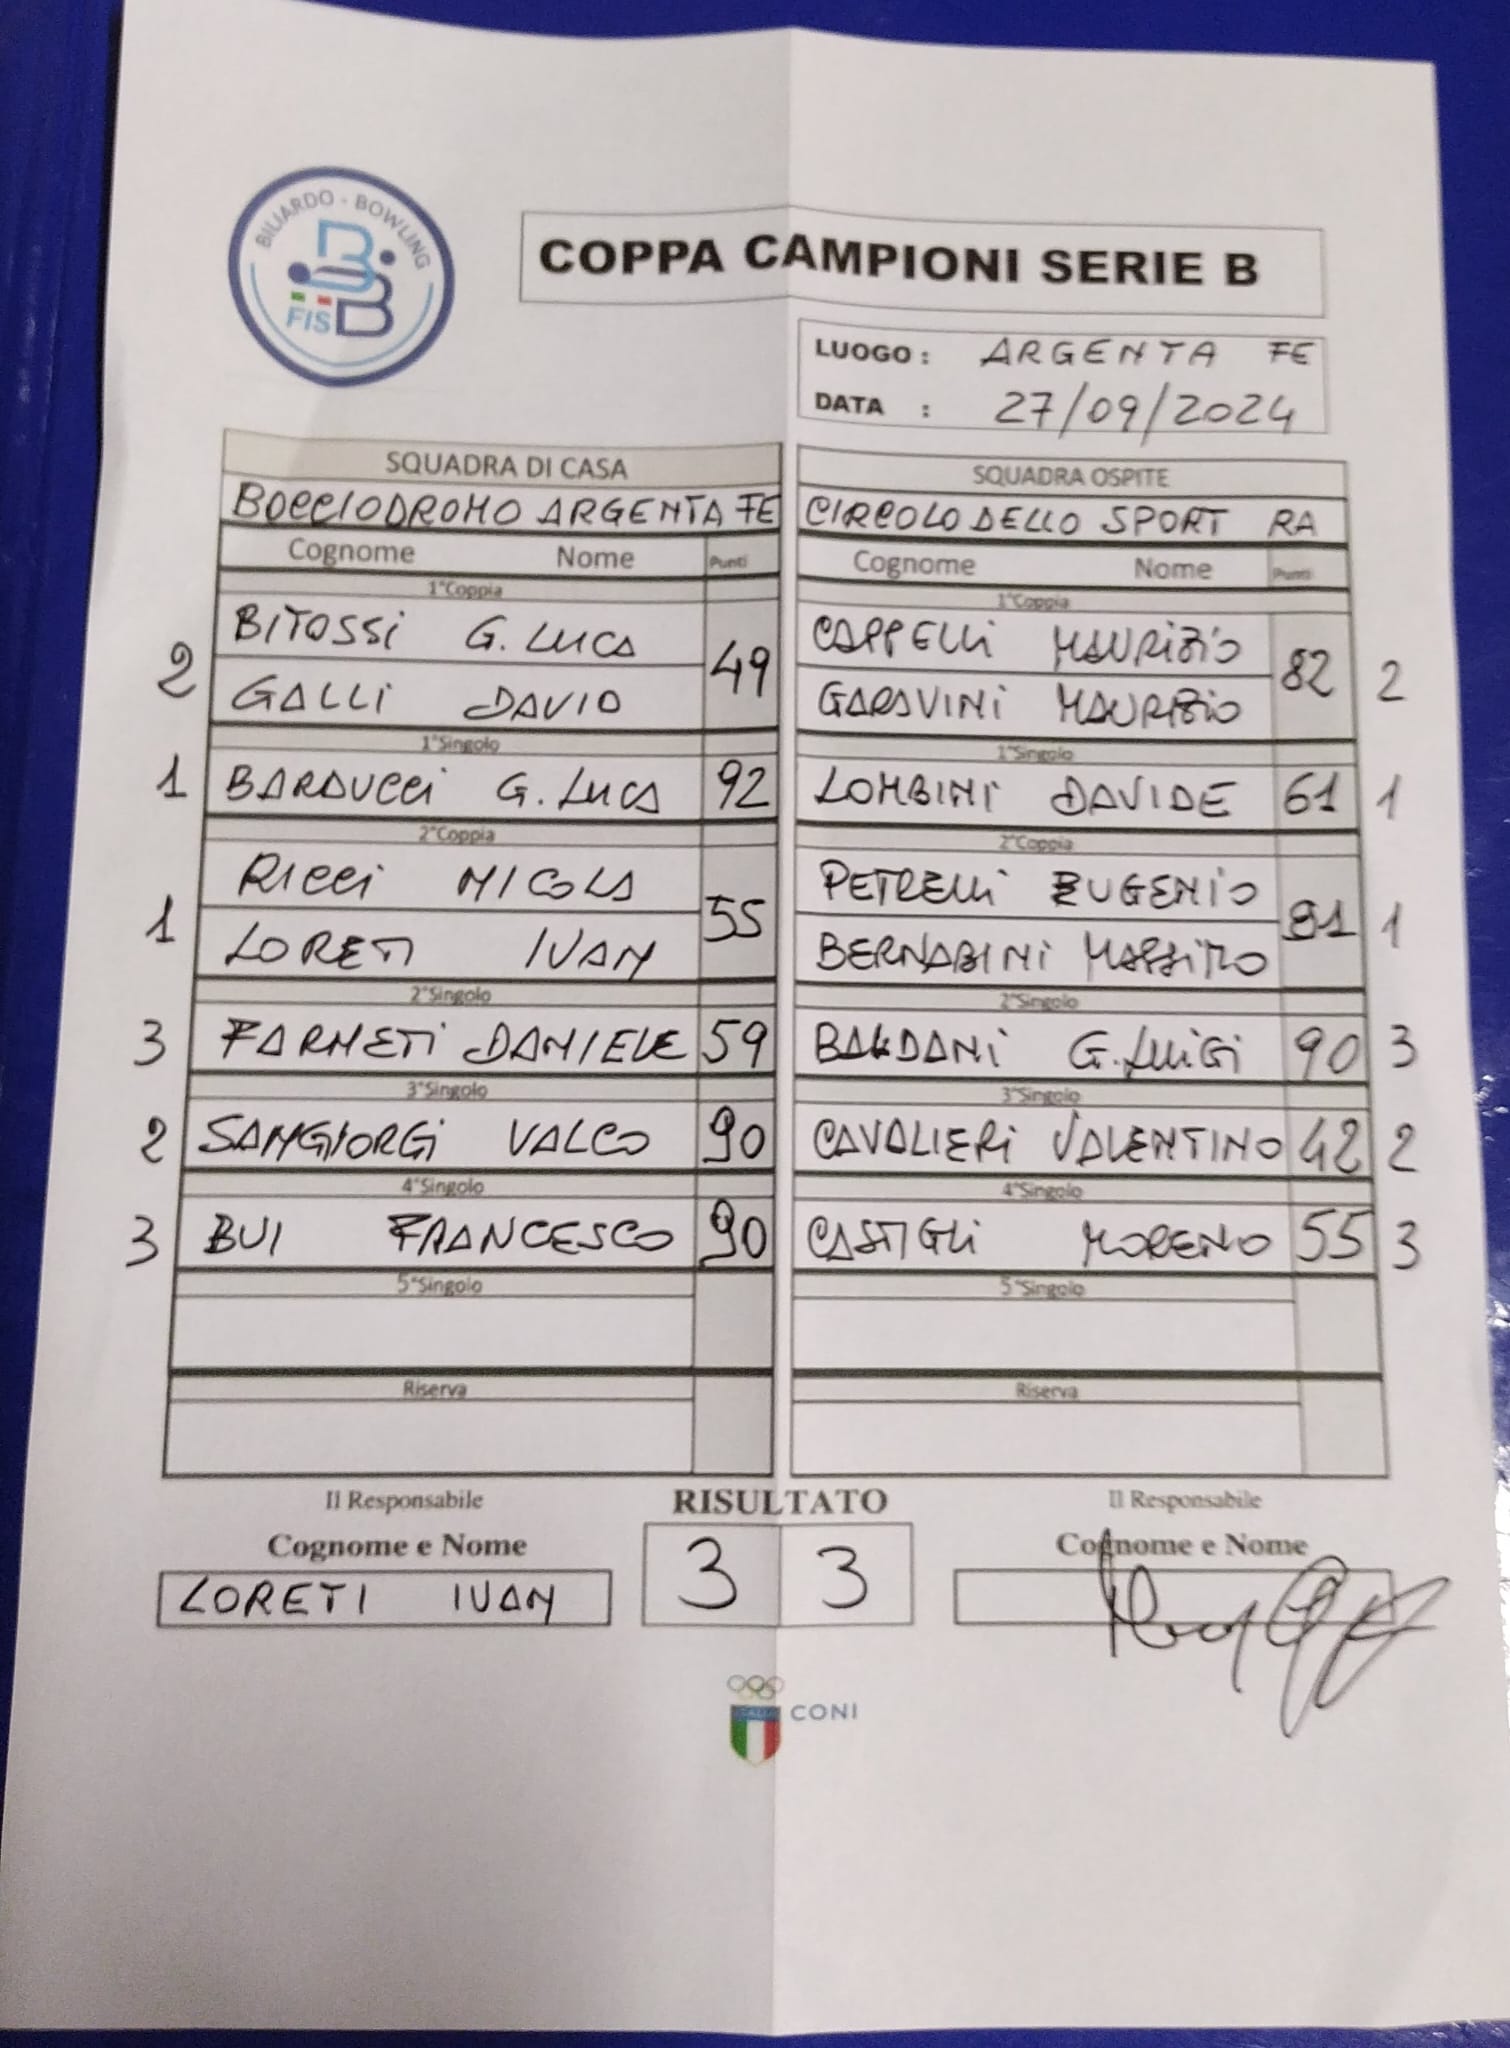 BILIARDO - BOWLING
FISBB
COPPA CAMPIONI SERIE B
LUOGO : ARGENTA FE
DATA : 27/09/2024
SQUADRA DI CASA
BOCCIODROMO ARGENTA FE
Cognome Nome Punti
1°Coppia
2 BITOSSI G. LUCA 49
GALLI DAVID
1°Singolo
1 BARDUCCI G. LUCA 92
2°Coppia
1 RICCI NICOLA 55
LORETI IVAN
2°Singolo
3 FARNETI DANIELE 59
3°Singolo
2 SANGIORGI VALCO 90
4°Singolo
3 BUI FRANCESCO 90
5°Singolo
Riserva
SQUADRA OSPITE
CIRCOLO DELLO SPORT RA
Cognome Nome Punti
1°Coppia
CAPPELLI MAURIZIO 82 2
GARAVINI MAURIZIO
1°Singolo
LOMBINI DAVIDE 61 1
2°Coppia
PETRELLI EUGENIO 1
BERNABINI MASSIMO
2°Singolo
BALDANI G. LUIGI 90 3
3°Singolo
CAVALIERI VALENTINO 42 2
4°Singolo
CASTIGLI MORENO 55 3
5°Singolo
Riserva
Il Responsabile
Cognome e Nome
LORETI IVAN
RISULTATO
3 3
Il Responsabile
Cognome e Nome
ITALIA
CONI